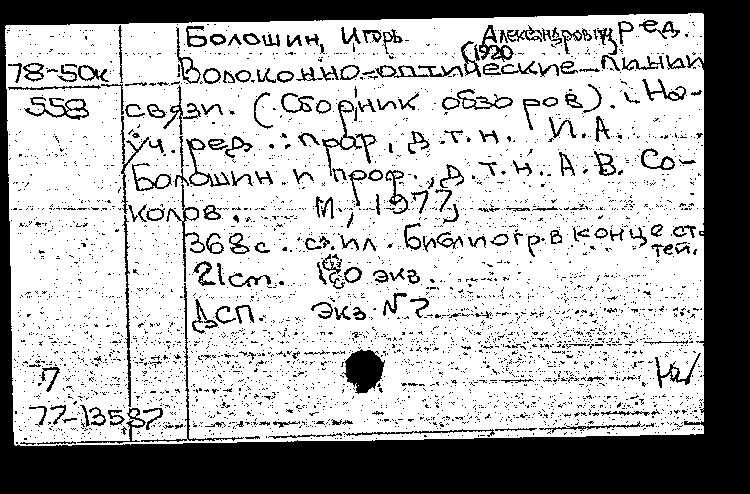 Болошин, Игорь Александрович, ред.
(1920
78-50к Волоконно-оптические линии
558 связи. (Сборник обзоров). На-
уч. ред.: проф., д.т.н. И.А.
Болошин и проф., д.т.н. А.В. Со-
колов. М., 1977,
368 с. с ил. Библиогр. в конце ст-
тей.
21 ст. экз.
ДСП. Экз №
7
77-13587